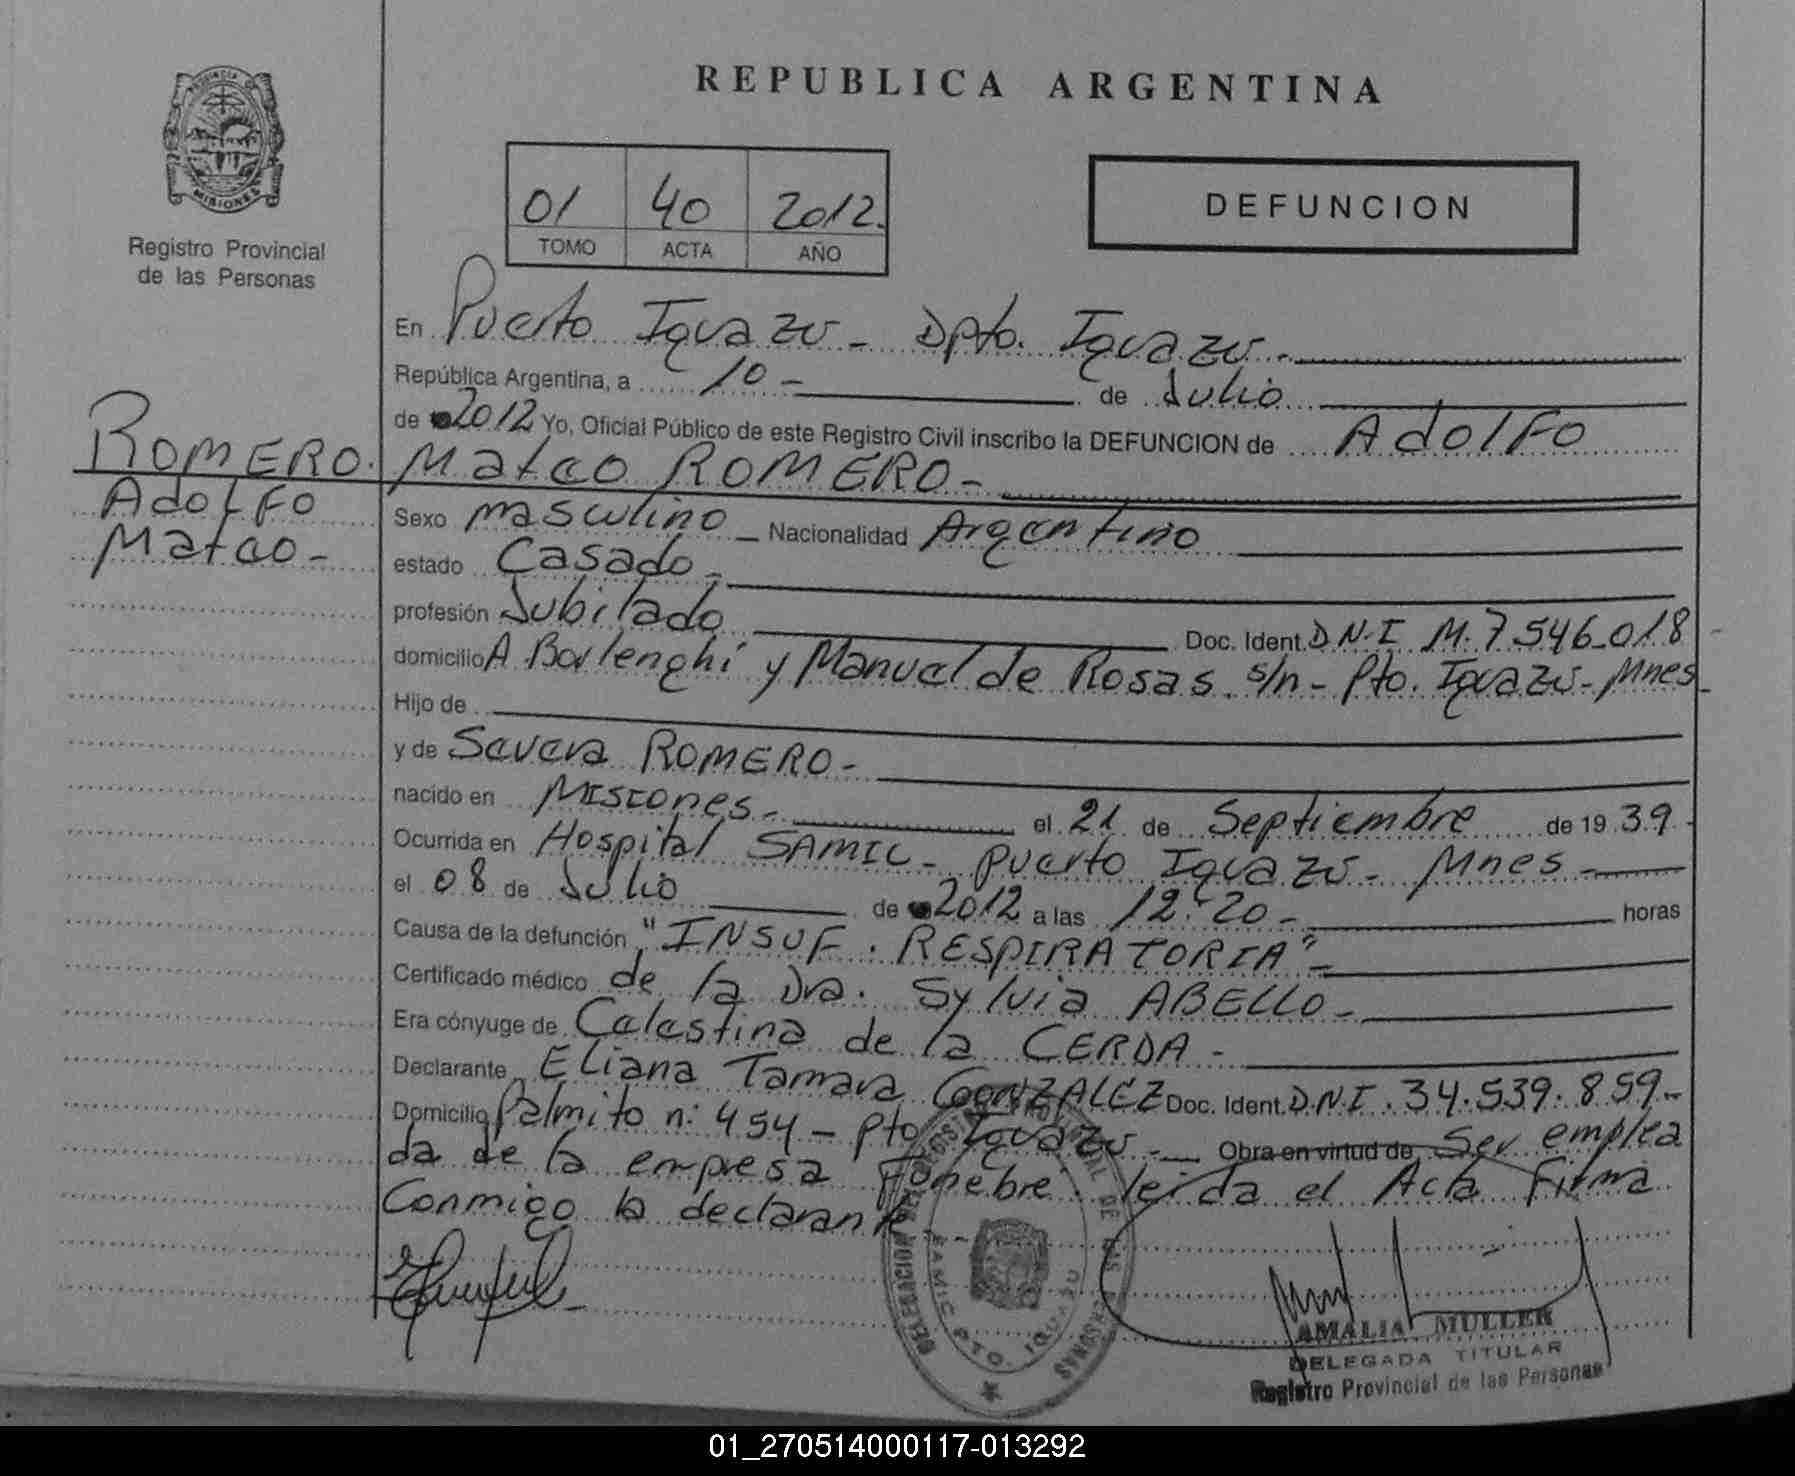 PROVINCIA DE
MISIONES
Registro Provincial
de las Personas
REPUBLICA ARGENTINA
01 40 2012.
TOMO ACTA AÑO
DEFUNCION
En Puerto Iguazú - Dpto. Iguazú.-
República Argentina, a 10 - de Julio
de 2012 Yo, Oficial Público de este Registro Civil inscribo la DEFUNCION de Adolfo
Mateo ROMERO -
ROMERO.
Adolfo
Mateo -
Sexo masculino - Nacionalidad Argentino
estado Casado -
profesión Jubilado Doc. Ident. D.N.I M. 7.546.018
domicilio A. Borlenghi y Manuel de Rosas s/n - Pto. Iguazú - Mnes
Hijo de
y de Severa ROMERO -
nacido en MISIONES - el 21 de Septiembre de 1939.
Ocurrida en Hospital SAMIC - Puerto Iguazú - Mnes -
el 08 de Julio de 2012 a las 12:20 - horas
Causa de la defunción "INSUF. RESPIRATORIA" -
Certificado médico de la Dra. Sylvia ABELLO -
Era cónyuge de Celestina de la CERDA -
Declarante Eliana Tamara GONZALEZ Doc. Ident. D.N.I. 34.539.859 -
Domicilio Palmito n: 454 - Pto Iguazú - Obra en virtud de Ser emplea
da de la empresa Fúnebre. leída el Acta Firma
Conmigo la declarante -
DELEGACION DEL REGISTRO PROVINCIAL DE LAS PERSONAS
SAMIC PTO. IGUAZU
AMALIA MULLER
DELEGADA TITULAR
Registro Provincial de las Personas
01_270514000117-013292